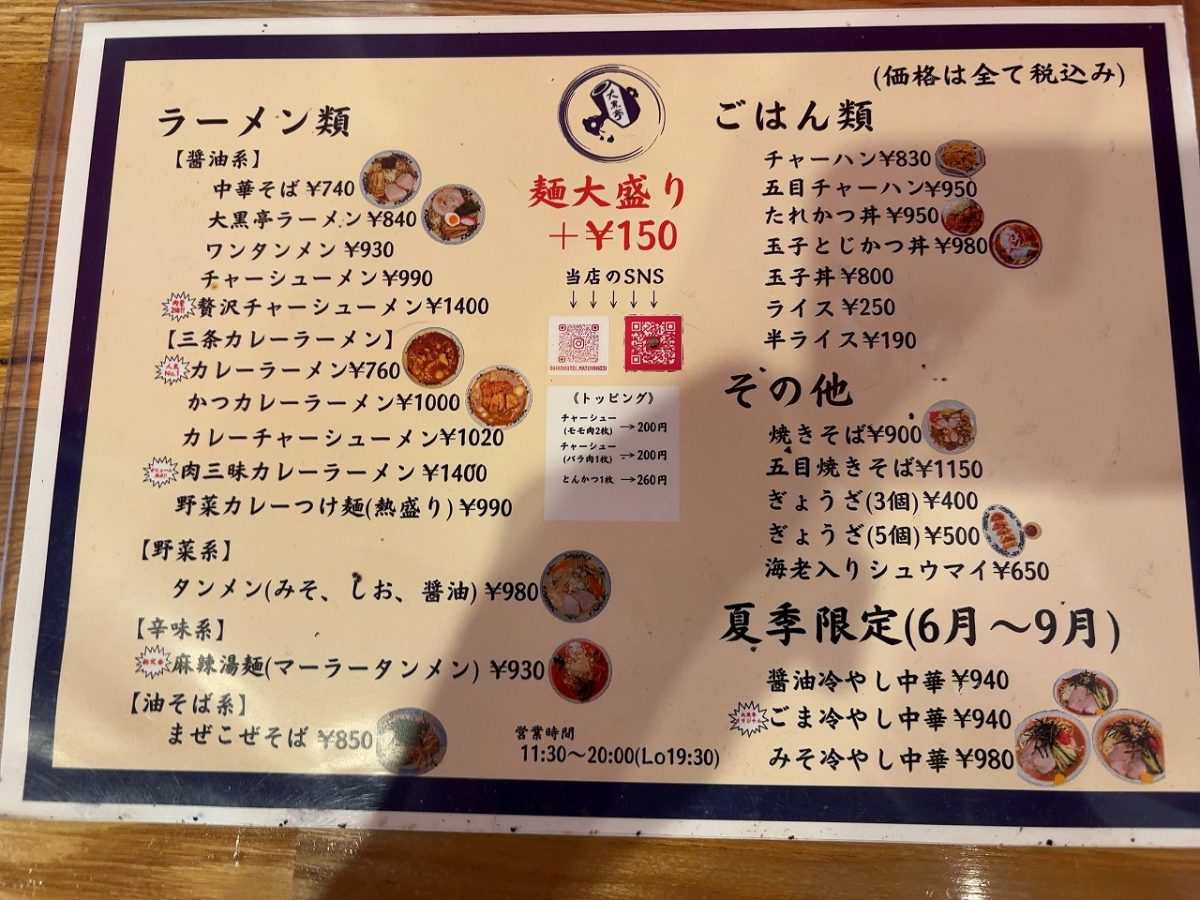 (価格は全て税込み)
ラーメン類
【醤油系】
中華そば ¥740
大黒亭ラーメン ¥840
ワンタンメン ¥930
チャーシューメン ¥990
贅沢チャーシューメン ¥1400
【三条カレーラーメン】
人気No.1
カレーラーメン ¥760
かつカレーラーメン ¥1000
カレーチャーシューメン ¥1020
肉三昧カレーラーメン ¥1400
野菜カレーつけ麺(熱盛り) ¥990
【野菜系】
タンメン(みそ、しお、醤油) ¥980
【辛味系】
新定番
麻辣湯麺(マーラータンメン) ¥930
【油そば系】
まぜこぜそば ¥850
大黒亭
麺大盛り
+¥150
当店のSNS
↓↓↓↓↓
《トッピング》
チャーシュー
(モモ肉2枚) →200円
チャーシュー
(バラ肉1枚) →200円
とんかつ1枚 →260円
営業時間
11:30~20:00(Lo19:30)
ごはん類
チャーハン ¥830
五目チャーハン ¥950
たれかつ丼 ¥950
玉子とじかつ丼 ¥980
玉子丼 ¥800
ライス ¥250
半ライス ¥190
その他
焼きそば ¥900
五目焼きそば ¥1150
ぎょうざ(3個) ¥400
ぎょうざ(5個) ¥500
海老入りシュウマイ ¥650
夏季限定(6月~9月)
醤油冷やし中華 ¥940
ごま冷やし中華 ¥940
みそ冷やし中華 ¥980